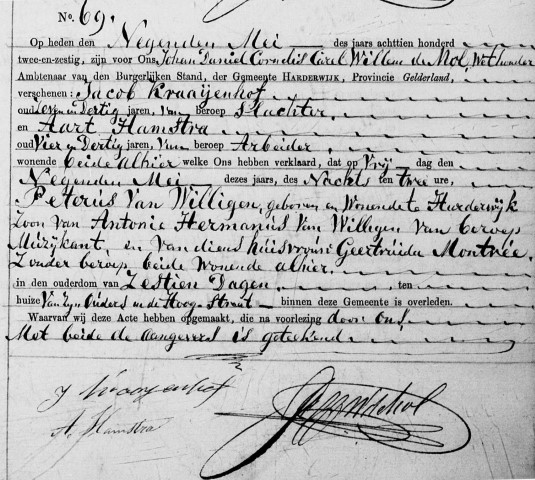 No. 69.
Op heden den Negenden Mei des jaars achttien honderd
twee-en-zestig, zijn voor Ons, Johan Daniel Cornelis Carel Willem de Mol, Wethouder
Ambtenaar van den Burgerlijken Stand, der Gemeente HARDERWIJK, Provincie Gelderland,
verschenen: Jacob Kraaijenhof
oud Zeven en Dertig jaren, van beroep Slachter,
en Aart Hamstra
oud Vier en Dertig jaren, van beroep Arbeider,
wonende beide alhier welke Ons hebben verklaard, dat op Vrij dag den
Negenden Mei dezes jaars, des Nachts ten twee ure,
Peterus Van Willigen, geboren en Wonende te Harderwijk
Zoon van Antonie Hermanus Van Willigen van beroep
Muzykant, en van diens huisvrouw Geertruida Montrée.
Zonder beroep beide Wonende alhier.
in den ouderdom van Zestien Dagen, ten
huize Van zyn Ouders in de Hoog Straat binnen deze Gemeente is overleden.
Waarvan wij deze Acte hebben opgemaakt, die na voorlezing door Ons,
Met beide de Aangevers is geteekend
J Kraayenhof
A. Hamstra